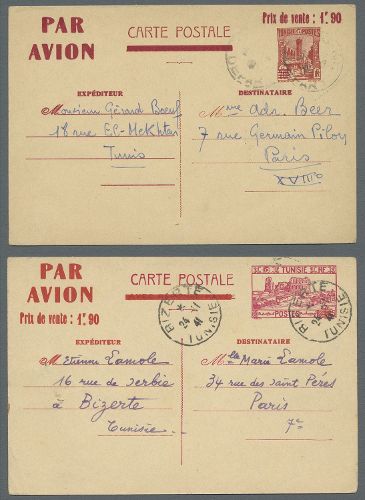 PAR
AVION
CARTE POSTALE
Prix de vente : 1f.90
TUNISIE POSTES
EXPÉDITEUR
Monsieur Gérard Boeuf
18 rue El-Mekhtar
Tunis
DESTINATAIRE
Mme Adr. Beer
7 rue Germain Pilon
Paris
XVIIIe
PAR
AVION
Prix de vente : 1f.90
CARTE POSTALE
TUNISIE
POSTES
BIZERTE
24 -1
41
TUNISIE
BIZERTE
24 -1
41
TUNISIE
EXPÉDITEUR
M. Etienne Lamole
16 rue de Serbie
à Bizerte
Tunisie
DESTINATAIRE
Mlle Marie Lamole
34 rue des Saint Pères
Paris
7e